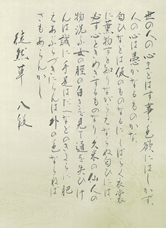 世の人の心まどはす事色欲にはしかず
人の心は愚かなるものかな
匂ひなどは仮のものなるにしばらく衣裳
に薫物すと知りながらえならぬ匂ひには
必ず心ときめきするものなり久米の仙人の
物洗ふ女の脛の白きを見て通を失ひけ
んは誠に手足はだへなどのきよらに肥
えあぶらづきたらんは外の色ならねば
さもあらんかし
徒然草 八段